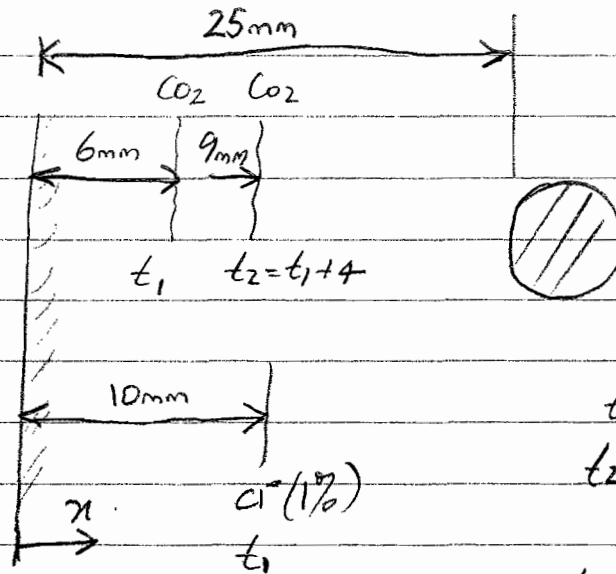 25mm
CO2 CO2
6mm 9mm
t1 t2=t1+4
10mm
t
t2
Cl⁻(1%)
x
t1